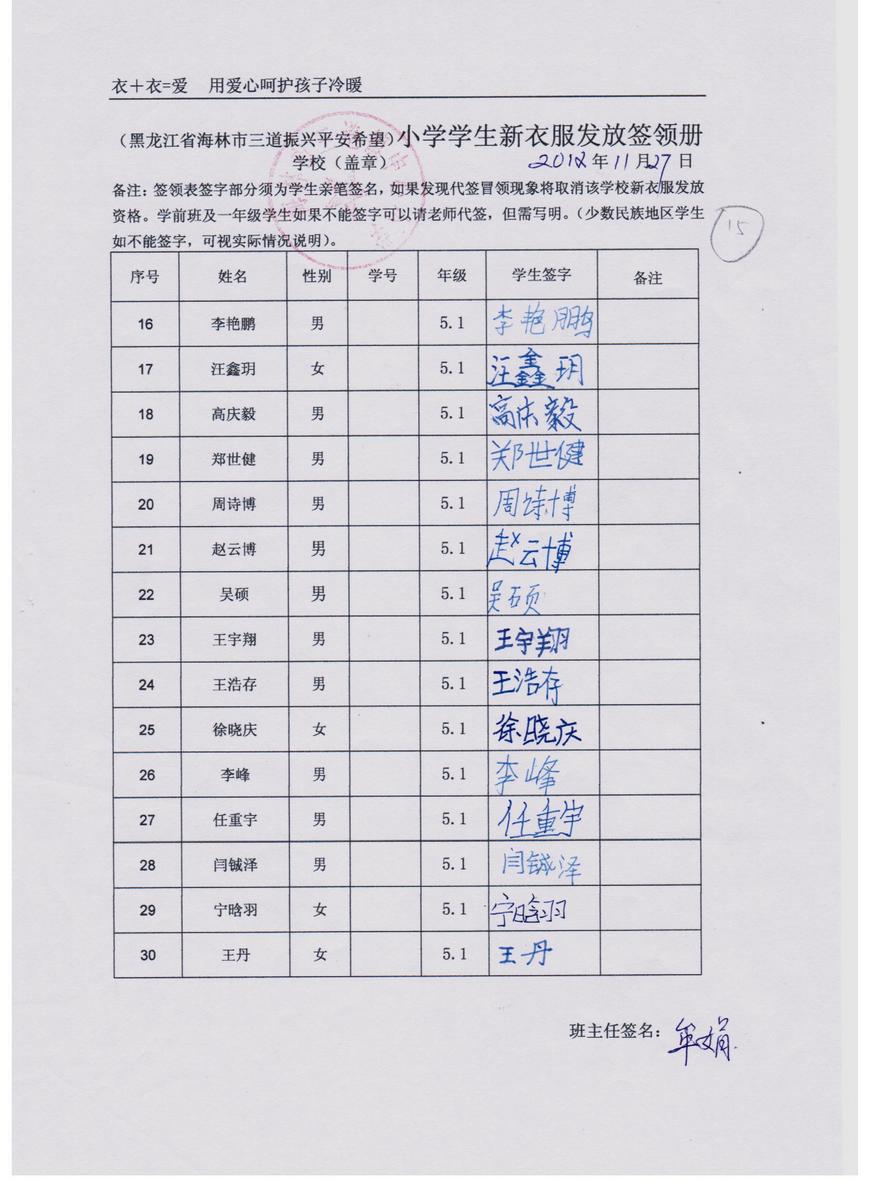 衣＋衣=爱 用爱心呵护孩子冷暖
（黑龙江省海林市三道振兴平安希望）小学学生新衣服发放签领册
学校（盖章） 2012年11月27日
备注：签领表签字部分须为学生亲笔签名，如果发现代签冒领现象将取消该学校新衣服发放
资格。学前班及一年级学生如果不能签字可以请老师代签，但需写明。（少数民族地区学生
如不能签字，可视实际情况说明）。
15
序号 姓名 性别 学号 年级 学生签字 备注
16 李艳鹏 男 5.1 李艳鹏
17 汪鑫玥 女 5.1 汪鑫玥
18 高庆毅 男 5.1 高庆毅
19 郑世健 男 5.1 郑世健
20 周诗博 男 5.1 周诗博
21 赵云博 男 5.1 赵云博
22 吴硕 男 5.1 吴硕
23 王宇翔 男 5.1 王宇翔
24 王浩存 男 5.1 王浩存
25 徐晓庆 女 5.1 徐晓庆
26 李峰 男 5.1 李峰
27 任重宇 男 5.1 任重宇
28 闫铖泽 男 5.1 闫铖泽
29 宁晗羽 女 5.1 宁晗羽
30 王丹 女 5.1 王丹
班主任签名：牟娟